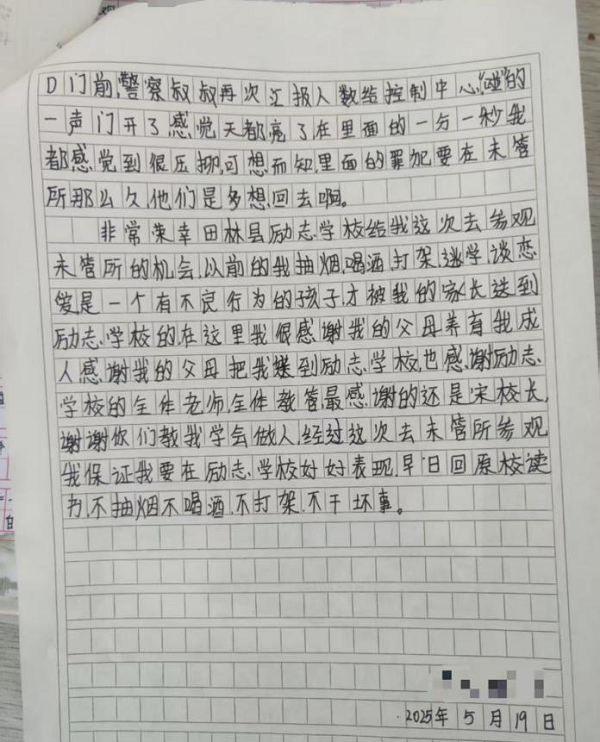 D门前,警察叔叔再次汇报人数给控制中心,“碰”的
一声门开了感觉天都亮了在里面的一分一秒我
都感觉到很压抑,可想而知,里面的罪犯要在未管
所那么久他们是多想回去啊。
非常荣幸田林县励志学校给我这次去参观
未管所的机会,以前的我抽烟,喝酒,打架,逃学,谈恋
爱是一个有不良行为的孩子才被我的家长送到
励志学校的,在这里我很感谢我的父母养育我成
人感谢我的父母把我送到励志学校,也感谢励志
学校的全体老师,全体教管最感谢的还是宋校长,
谢谢你们教我学会做人,经过这次去未管所参观
我保证我要在励志学校好好表现,早日回原校读
书,不抽烟不喝酒,不打架,不干坏事。
2025年5月19日